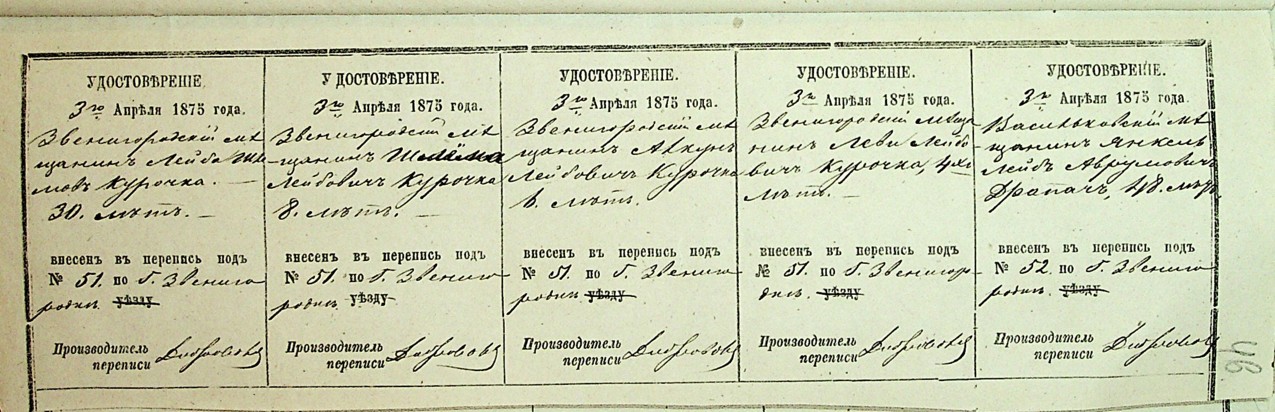 УДОСТОВѢРЕНІЕ
3го Апрѣля 1875 года.
Звенигородскій мѣ
щанинъ Лейба
Курочка. —
30. лѣтъ. —
внесенъ въ перепись подъ
№ 51. по г. Звениго
родкѣ. уѣзду
Производитель
переписи
УДОСТОВѢРЕНІЕ.
3го Апрѣля 1875 года.
Звенигородскій мѣ
-щанинъ
Лейбовичъ Курочка
8. лѣтъ. —
внесенъ въ перепись подъ
№ 51. по г. Звениго
родкѣ уѣзду
Производитель
переписи
УДОСТОВѢРЕНІЕ.
3го Апрѣля 1875 года.
Звенигородскій мѣ
щанинъ
Лейбовичъ Курочка
6. лѣтъ.
внесенъ въ перепись подъ
№ 51. по г. Звениго
родкѣ уѣзду
Производитель
переписи
УДОСТОВѢРЕНІЕ.
3го Апрѣля 1875 года.
Звенигородскій мѣща
нинъ Леви Лейбо
вичъ Курочка, 4хъ
лѣтъ.
внесенъ въ перепись подъ
№ 51. по г. Звенигор
дкѣ. уѣзду
Производитель
переписи
УДОСТОВѢРЕНІЕ.
3го Апрѣля 1875 года.
Васильковскій мѣ
-щанинъ Янкель
Лейбъ Аврумовичъ
Драпачъ, 48. лѣтъ
внесенъ въ перепись подъ
№ 52. по г. Звениго
родкѣ. уѣзду
Производитель
переписи
46